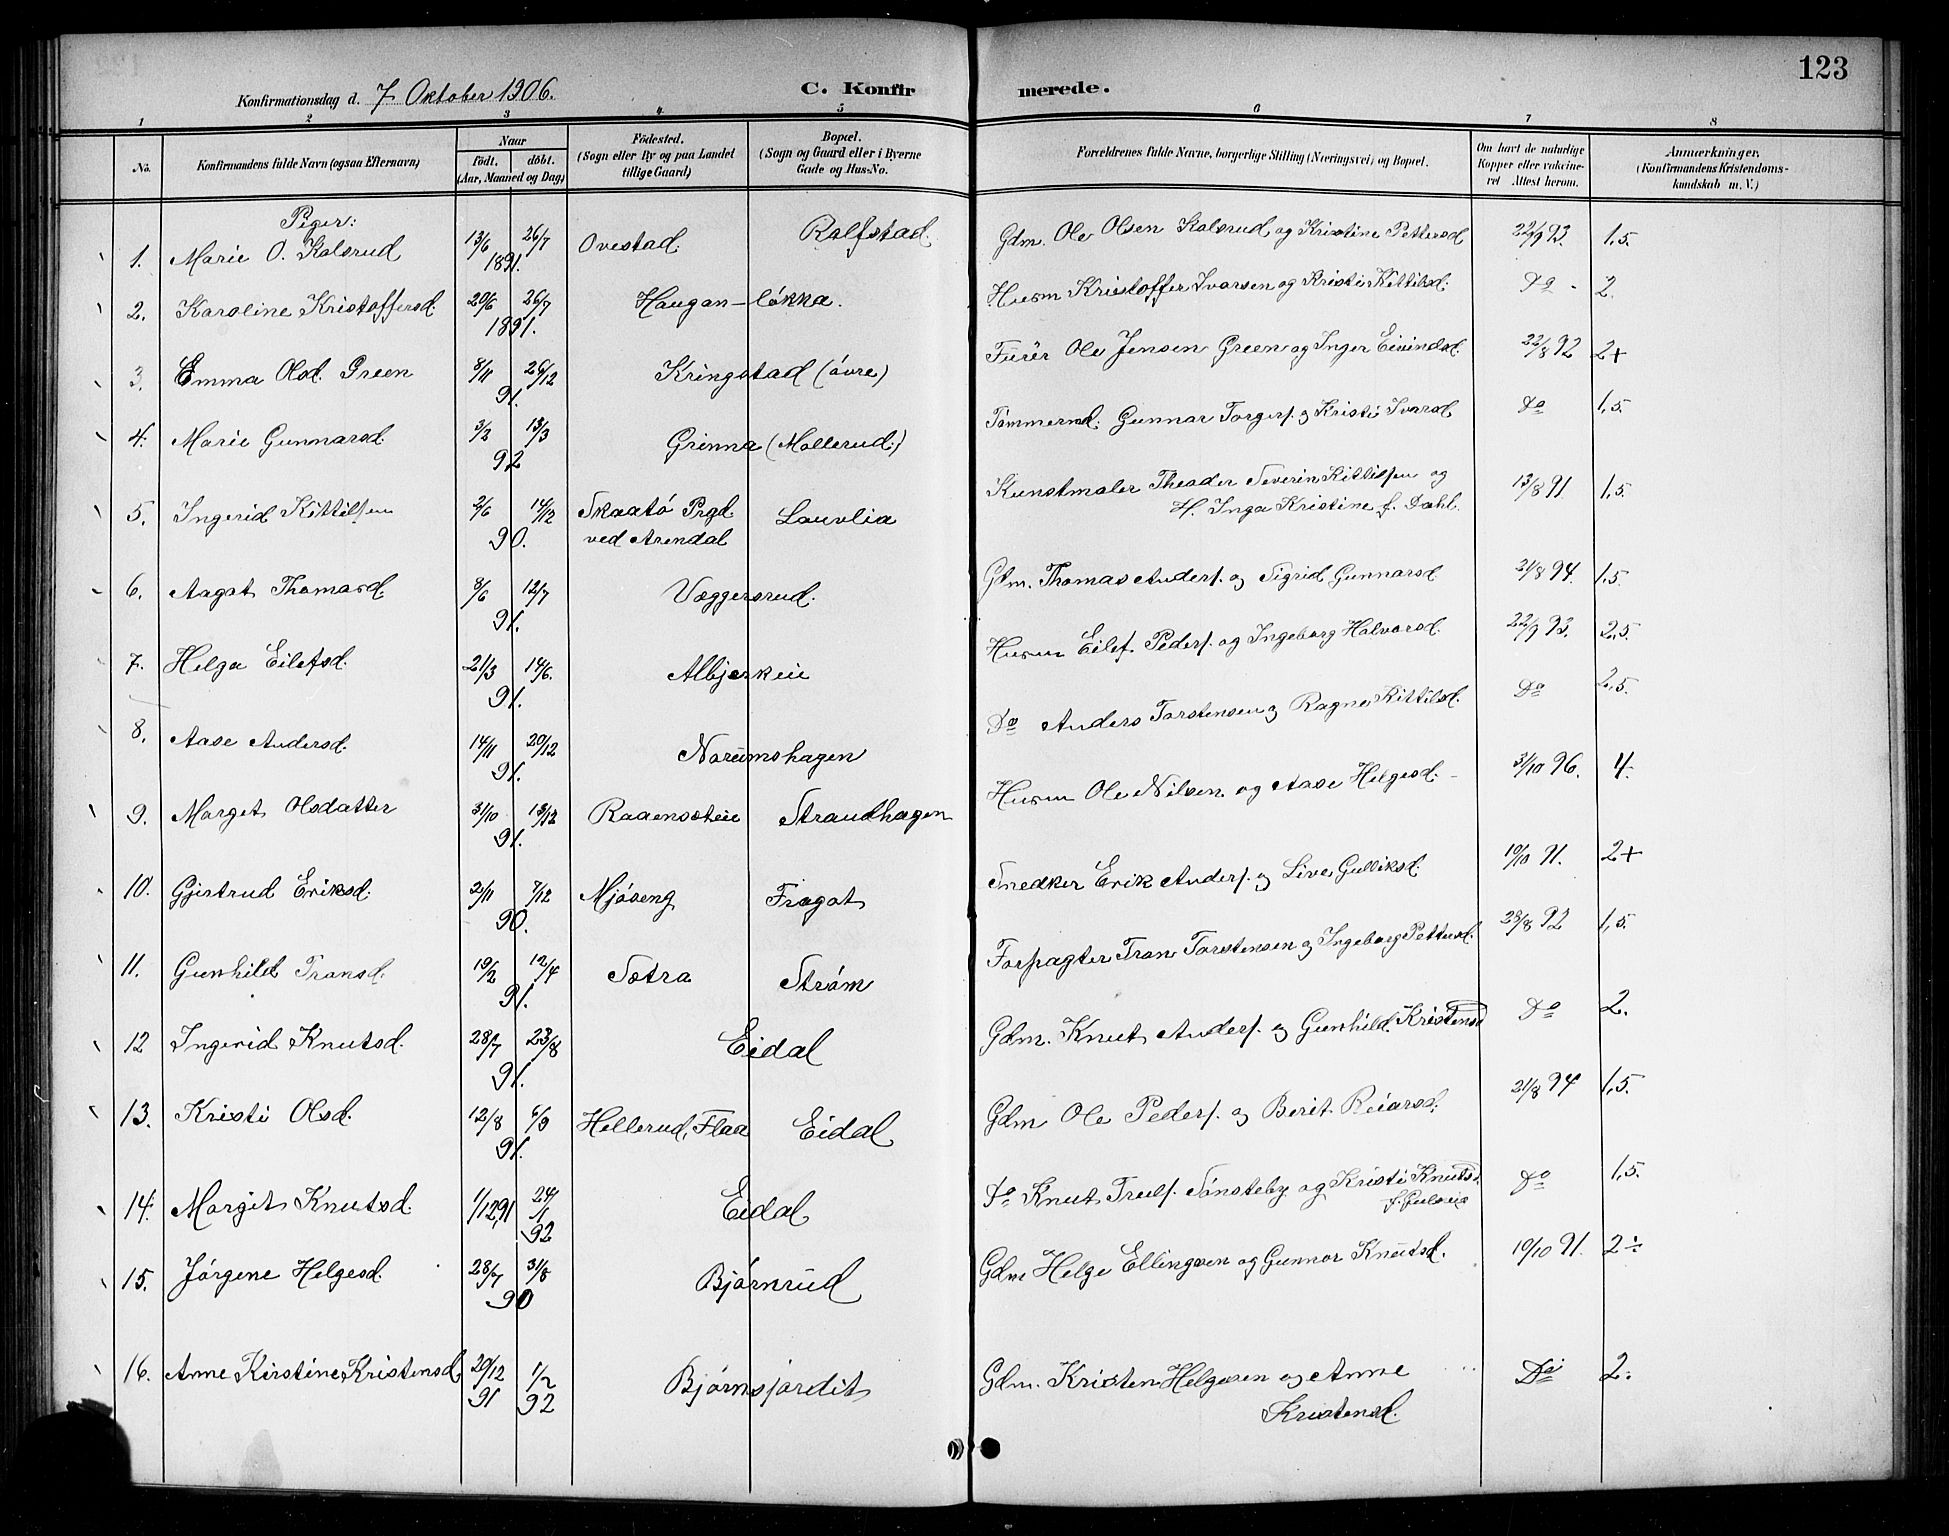 123
Konfirmationsdag d. 7 Oktober 1906. C. Konfir merede.
1 2 3 4 5 6 7 8
No. Konfirmandens fulde Navn (ogsaa Efternavn) Naar födt, döbt. (Aar, Maaned og Dag) Födested. (Sogn eller By og paa Landet tillige Gaard) Bopæl. (Sogn og Gaard eller i Byerne Gade og Hus-No. Forældrenes fulde Navne, borgerlige Stilling (Næringsvei) og Bopæl. Om havt de naturlige Kopper eller vakcineret Attest herom. Anmærkninger, (Konfirmandens Kristendomskundskab m. V.)
Piger:
1. Marie O. Kolsrud 13/6 26/7 1891. Ovestad Rolfstad Gdm. Ole Olsen Kolsrud og Kristine Pettersd 22/9 93. 1,5.
2. Karoline Kristoffersd. 20/6 26/7 1891. Haugan-løkka. Husm Kristoffer Ivarsen og Kristi Kittilsd. Do - 2.
3. Emma Olsd. Green 8/11 26/12 91. Kringstad (øvre) Furér Ole Jensen Green og Inger Eivindsd. 22/8 92 2+
4. Marie Gunnarsd. 3/2 13/3 92 Grinna (Mollerud) Tømmermd. Gunnar Torgers. og Kristi Ivarsd Do 1,5.
5. Ingerid Kittilsen 2/6 14/12 90. Skaatø Prgd. ved Arendal Lauvlia Kunstmaler Theader Severin Kittilsen og
H. Inga Kristine f. Dahl. 13/8 91 1,5.
6. Aagot Thomasd. 8/6 12/7 91. Væggersrud. Gdm. Thomas Anders. og Sigrid Gunnarsd 21/8 94. 1,5.
7. Helga Eilefsd. 21/3 14/6. 91. Albjerkeie Husm Eilef Peders. og Ingeborg Halvorsd. 22/9 93. 2,5.
8. Aase Andersd. 14/11 20/12 91. Norumshagen Do Anders Torstensen og Ragne Kittilsd. Do 2,5.
9. Margit Olsdatter 31/10 13/12 91. Raaenseteie Strandhagen Husm Ole Nilsen og Aase Helgesd. - 31/10 96. 4.
10. Gjertrud Eriksd. 2/11 7/12 90. Mjøseng Fragot Snedker Erik Anders. og Live Gulliksd. 10/10 91. 2+
11. Gunhild Transd. 19/2 12/4 91. Sætra Strøm Forpagter Tran Torstensen og Ingeborg Pettersd. 23/8 92 1,5.
12 Ingerid Knutsd. 28/7 23/8 91. Eidal Gdm. Knut Anders. og Gunhild Kristensd Do 2.
13. Kristi Olsd. 12/8 6/9 91. Hellerud, Flaa Eidal Gdm Ole Peders. og Berit Reiarsd. 21/8 94 1,5.
14. Margit Knutsd. 1/12,91 24/1 92 Eidal Do Knut Truls. Sønsteby og Kristi Knutsd.
f. Gulsvig Do 1,5.
15. Jørgene Helgesd. 28/7 31/8 90 Bjørnrud Gdm Helge Ellingsen og Gunnor Knutsd. 10/10 91. 2÷
16. Anne Kirstine Kristensd. 20/12 91 1/2 92 Bjørnsjordit Gdm. Kristen Helgesen og Anne
Kristensd. Do 2.